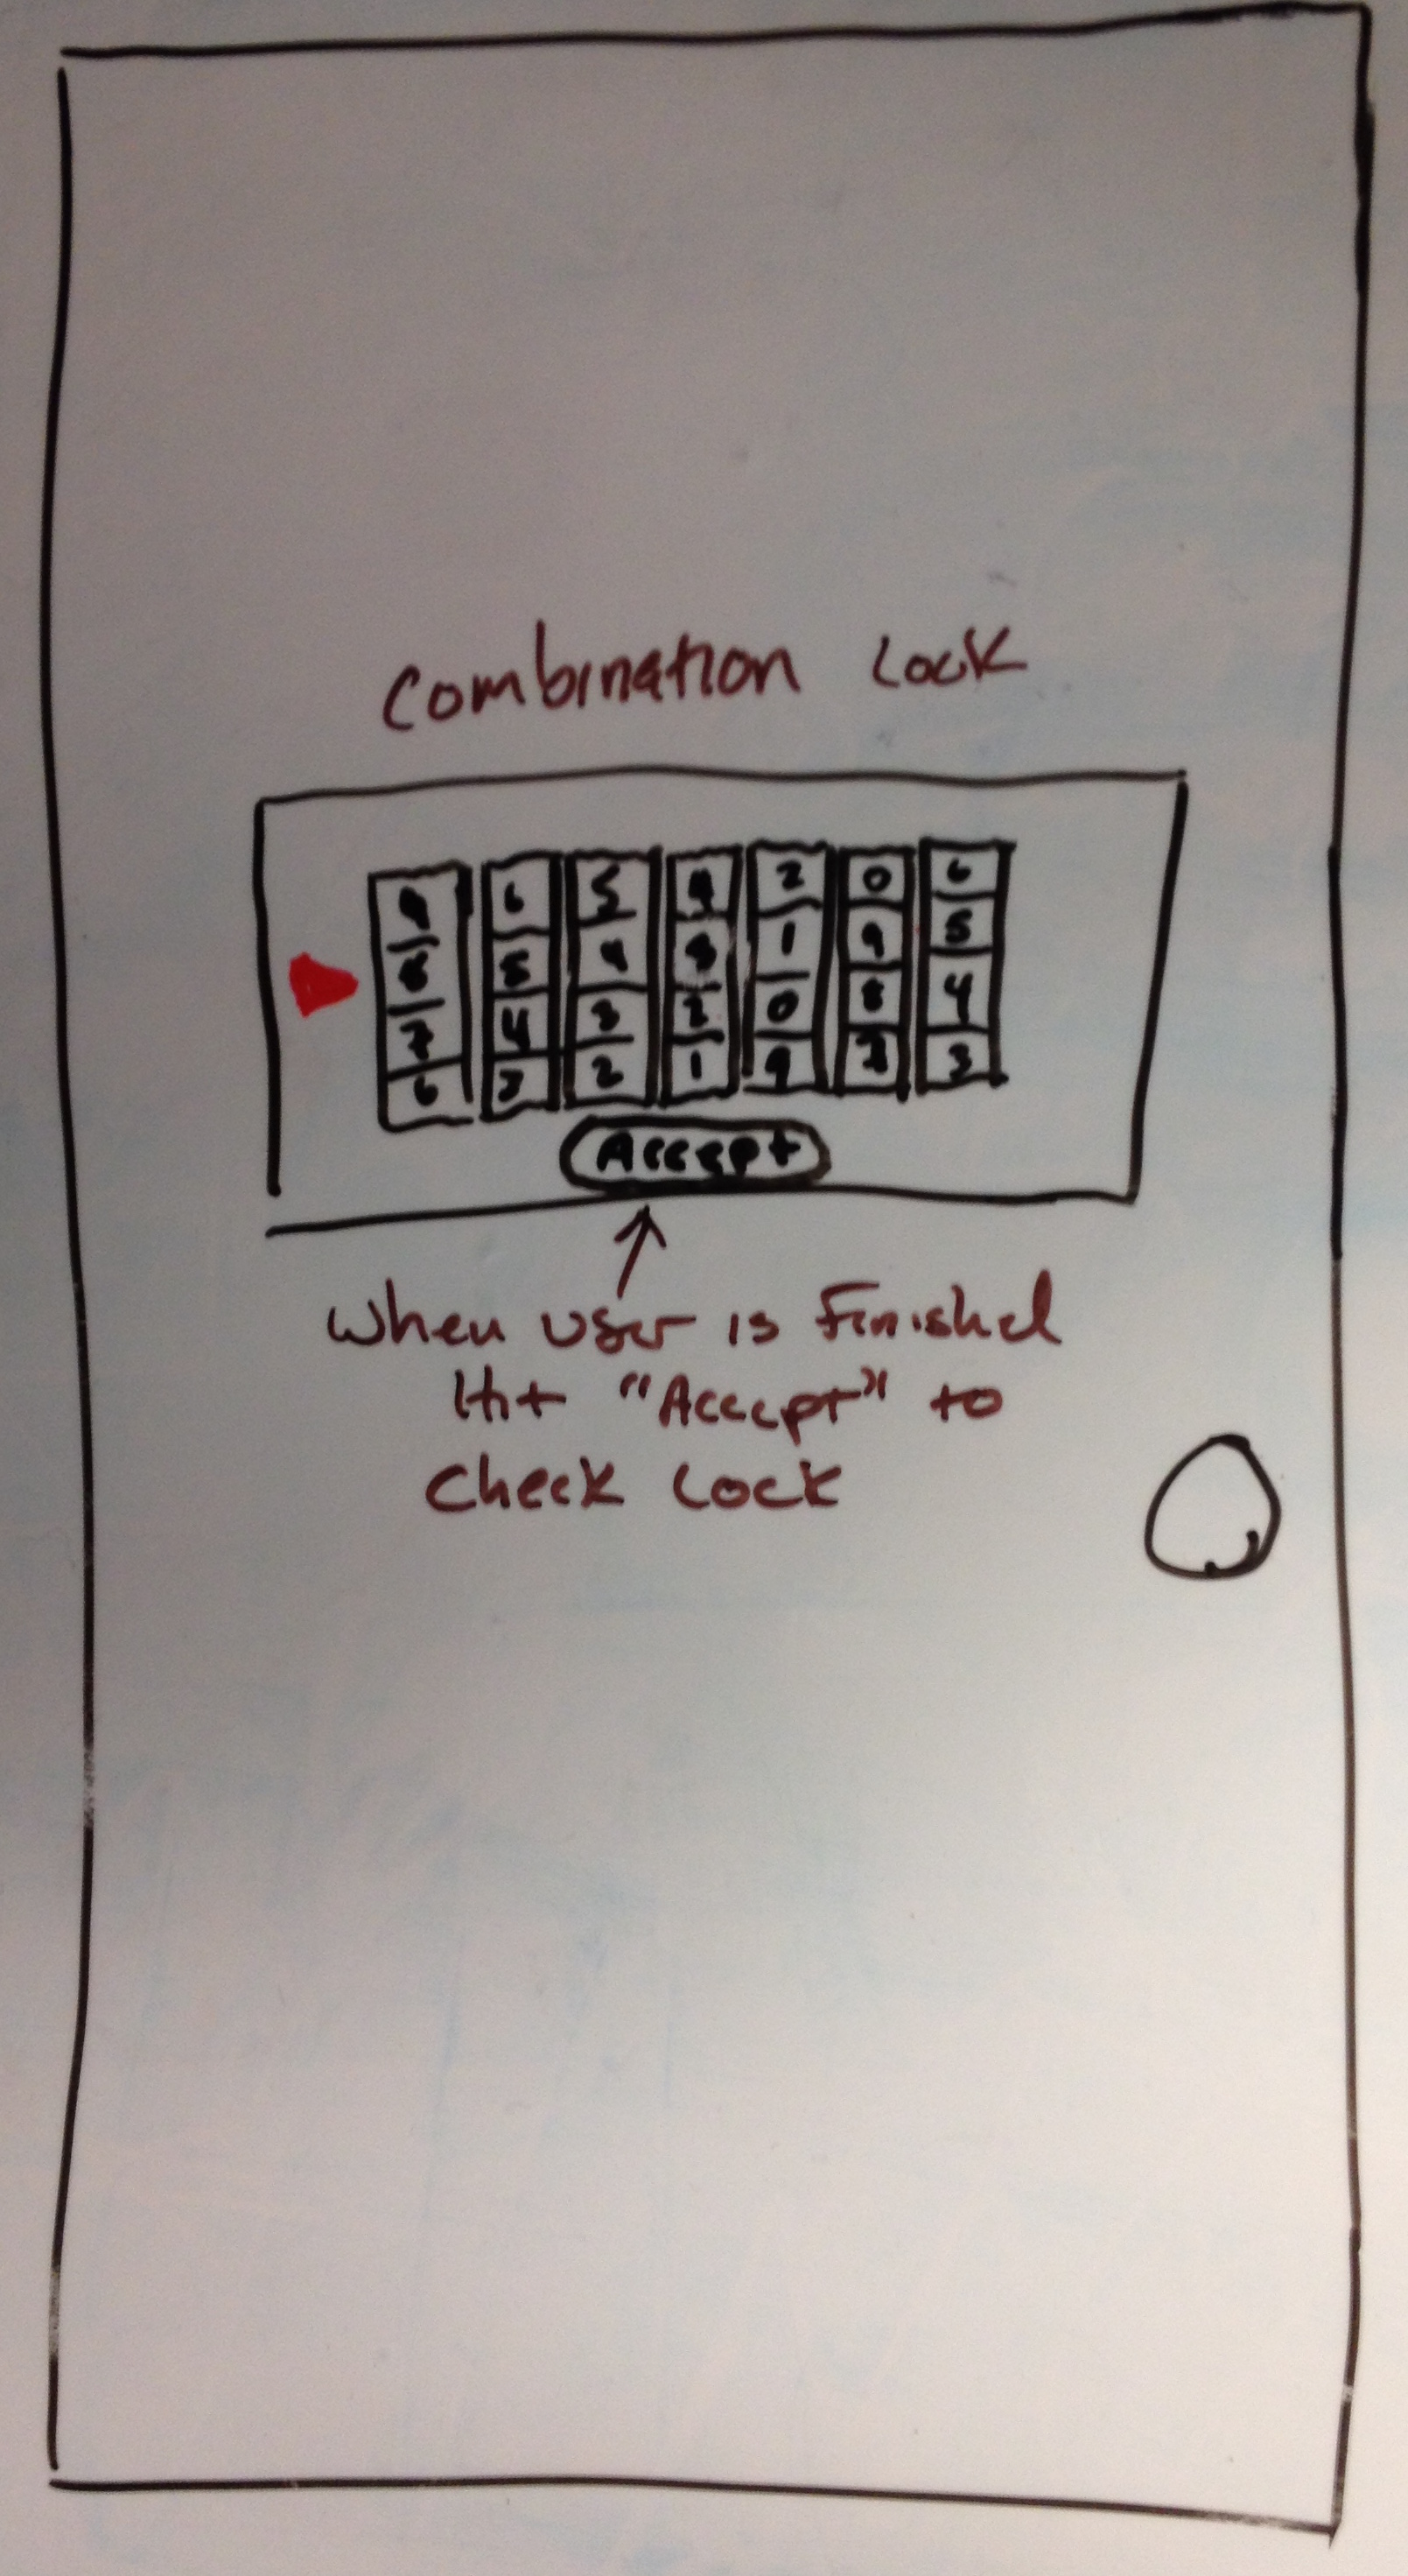 Combination Lock
9 6 5 4 2 0 6
8 5 4 3 1 9 5
7 4 3 2 0 8 4
6 3 2 1 9 7 3
Accept
When user is Finished
Hit "Accept" to
Check Lock